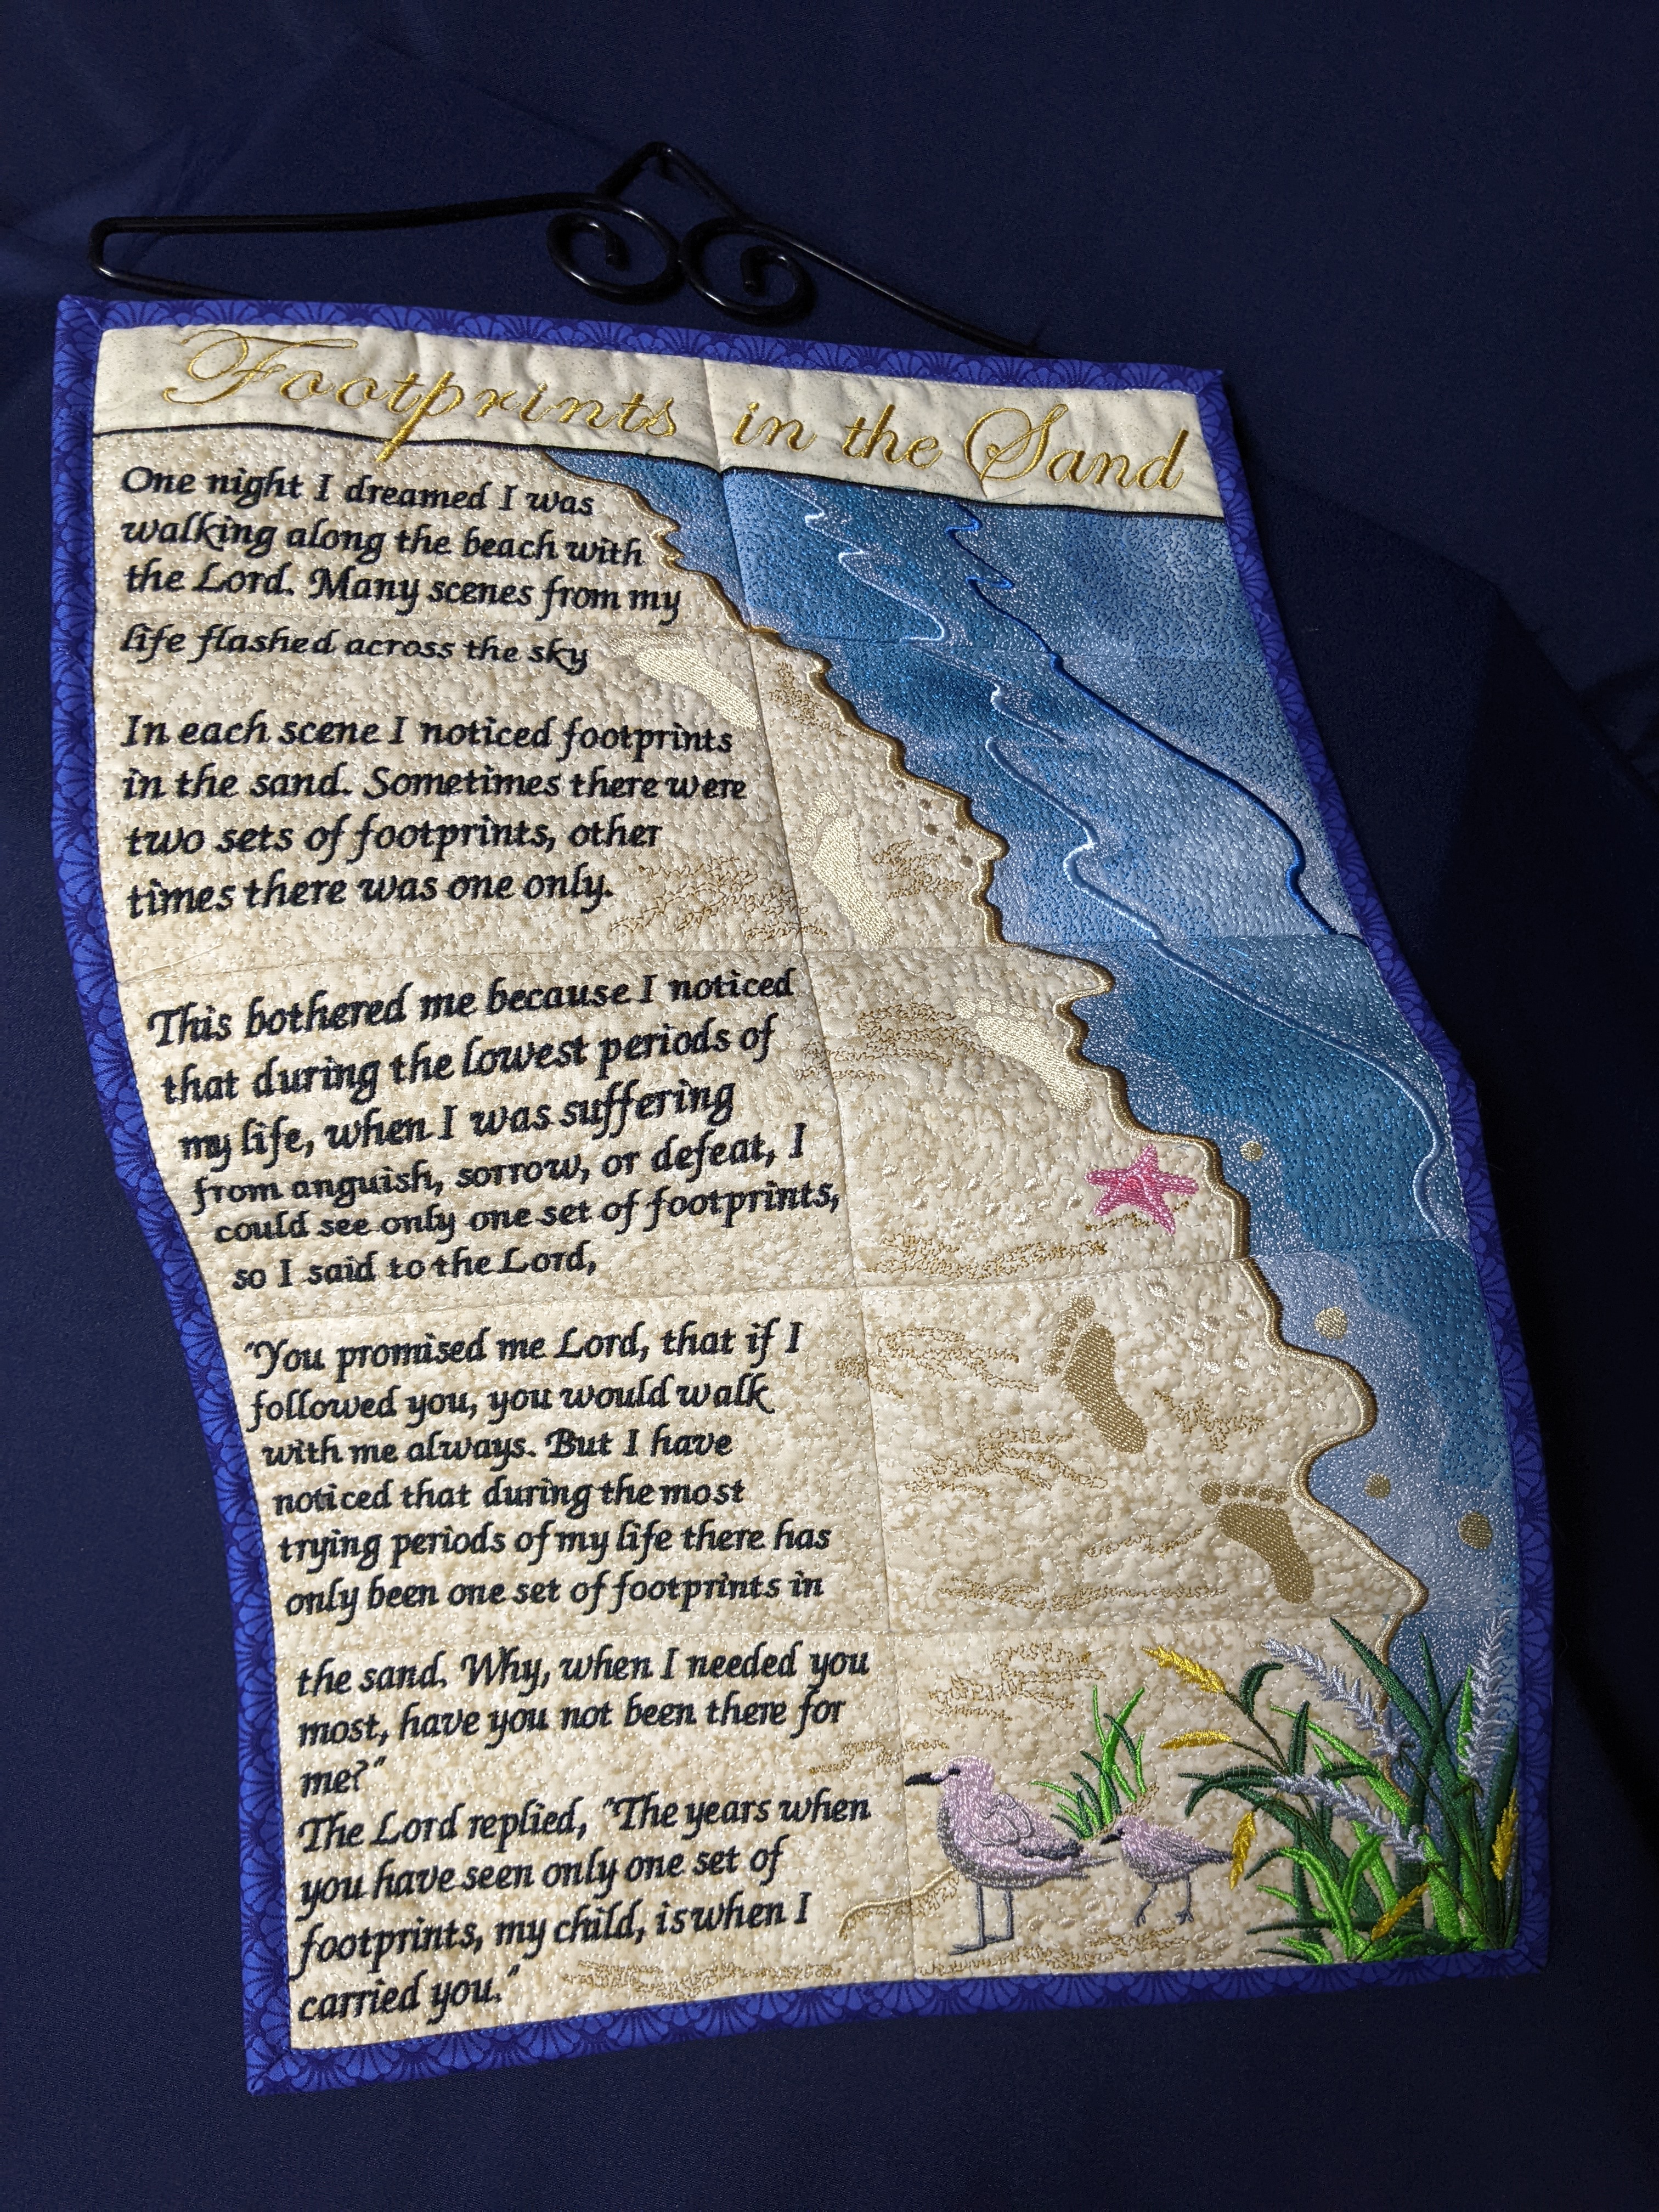 Footprints in the Sand
One night I dreamed I was
walking along the beach with
the Lord. Many scenes from my
life flashed across the sky
In each scene I noticed footprints
in the sand. Sometimes there were
two sets of footprints, other
times there was one only.
This bothered me because I noticed
that during the lowest periods of
my life, when I was suffering
from anguish, sorrow, or defeat, I
could see only one set of footprints,
so I said to the Lord,
"You promised me Lord, that if I
followed you, you would walk
with me always. But I have
noticed that during the most
trying periods of my life there has
only been one set of footprints in
the sand. Why, when I needed you
most, have you not been there for
me?"
The Lord replied, "The years when
you have seen only one set of
footprints, my child, is when I
carried you."